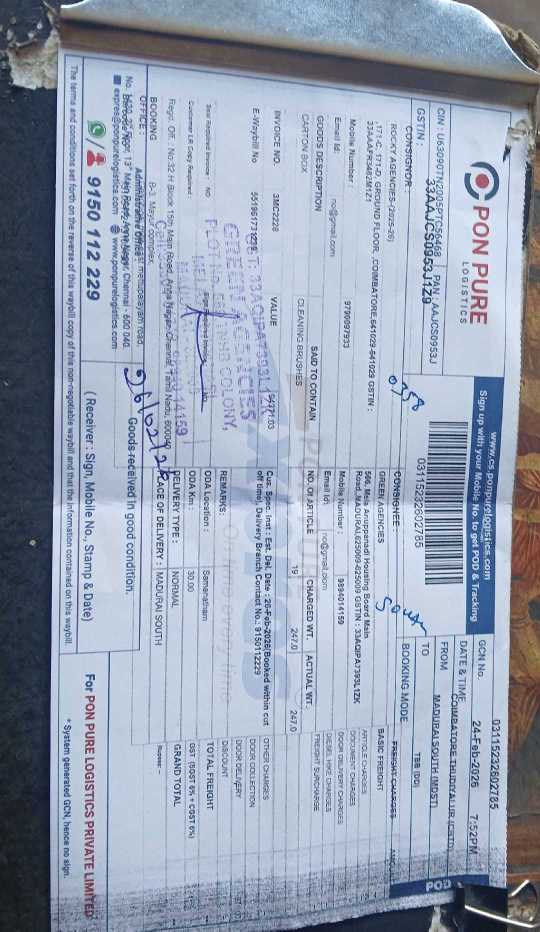 PON PURE
LOGISTICS
www.cs.ponpurelogistics.com
Sign up with your Mobile No. to get POD & Tracking
CIN : U63090TN2005PTC56468 PAN : AAJCS0953J
GSTIN : 33AAJCS0953J1Z9
031152322602785
GCN No. 031152322602785
DATE & TIME 24-Feb-2026 7:52PM
FROM COIMBATORE THUDIYALUR
TO MADURAI SOUTH (MDST)
BOOKING MODE TBB (DD)
POD
0758
South
CONSIGNOR :
ROCKY AGENCIES-(2025-26)
,171-C, 171-D, GROUND FLOOR, ,COIMBATORE,641029-641029 GSTIN :
33AAAFR3482M1Z1
Mobile Number : 9790097933
Email Id: no@gmail.com
CONSIGNEE :
GREEN AGENCIES
566, Mela Anuppanadi Housing Board Main
Road, MADURAI,625009-625009 GSTIN : 33AQIPA7393L1ZK
Mobile Number : 9894014159
Email Id: no@gmail.com
FREIGHT CHARGES
BASIC FREIGHT
ARTICLE CHARGES
DOCUMENT CHARGES
DOOR DELIVERY CHARGES
DIESEL HIKE CHARGES
FREIGHT SURCHARGE
OTHER CHARGES
DOOR COLLECTION
DOOR DELIVERY
DISCOUNT
TOTAL FREIGHT
GST (SGST 6% + CGST 6%)
GRAND TOTAL
GOODS DESCRIPTION SAID TO CONTAIN NO. OF ARTICLE CHARGED WT. ACTUAL WT.
CARTON BOX CLEANING BRUSHES 19 247.0 247.0
INVOICE NO. 3MC2228 VALUE
E-Waybill No. 551961731239
Seal Required Invoice : NO
Customer LR Copy Required
Cus. Spec. Inst : Est. Del. Date : 26-Feb-2026(Booked within cut
off time), Delivery Branch Contact No.: 9150112229
REMARKS:
ODA Location : Samanatham
ODA Km : 30.00
DELIVERY TYPE : NORMAL
PLACE OF DELIVERY : MADURAI SOUTH
GST:33AQIPA7393L1ZK
GREEN AGENCIES
COLONY,
Regd. Off. : No:32 H Block 15th Main Road, Anna Nagar, Chennai, Tamil Nadu, 600040
BOOKING OFFICE : B-3, Mayur complex,
mettupalayam road,
Administrative Office :
13th Main Road, Anna Nagar, Chennai - 600 040.
expres@ponpurelogistics.com www.ponpurelogistics.com
9150 112 229
26/02/26
Goods received in good condition.
( Receiver : Sign, Mobile No., Stamp & Date)
For PON PURE LOGISTICS PRIVATE LIMITED
The terms and conditions set forth on the reverse of this waybill copy of this non-negotiable waybill and that the information contained on this waybill.
* System generated GCN, hence no sign.